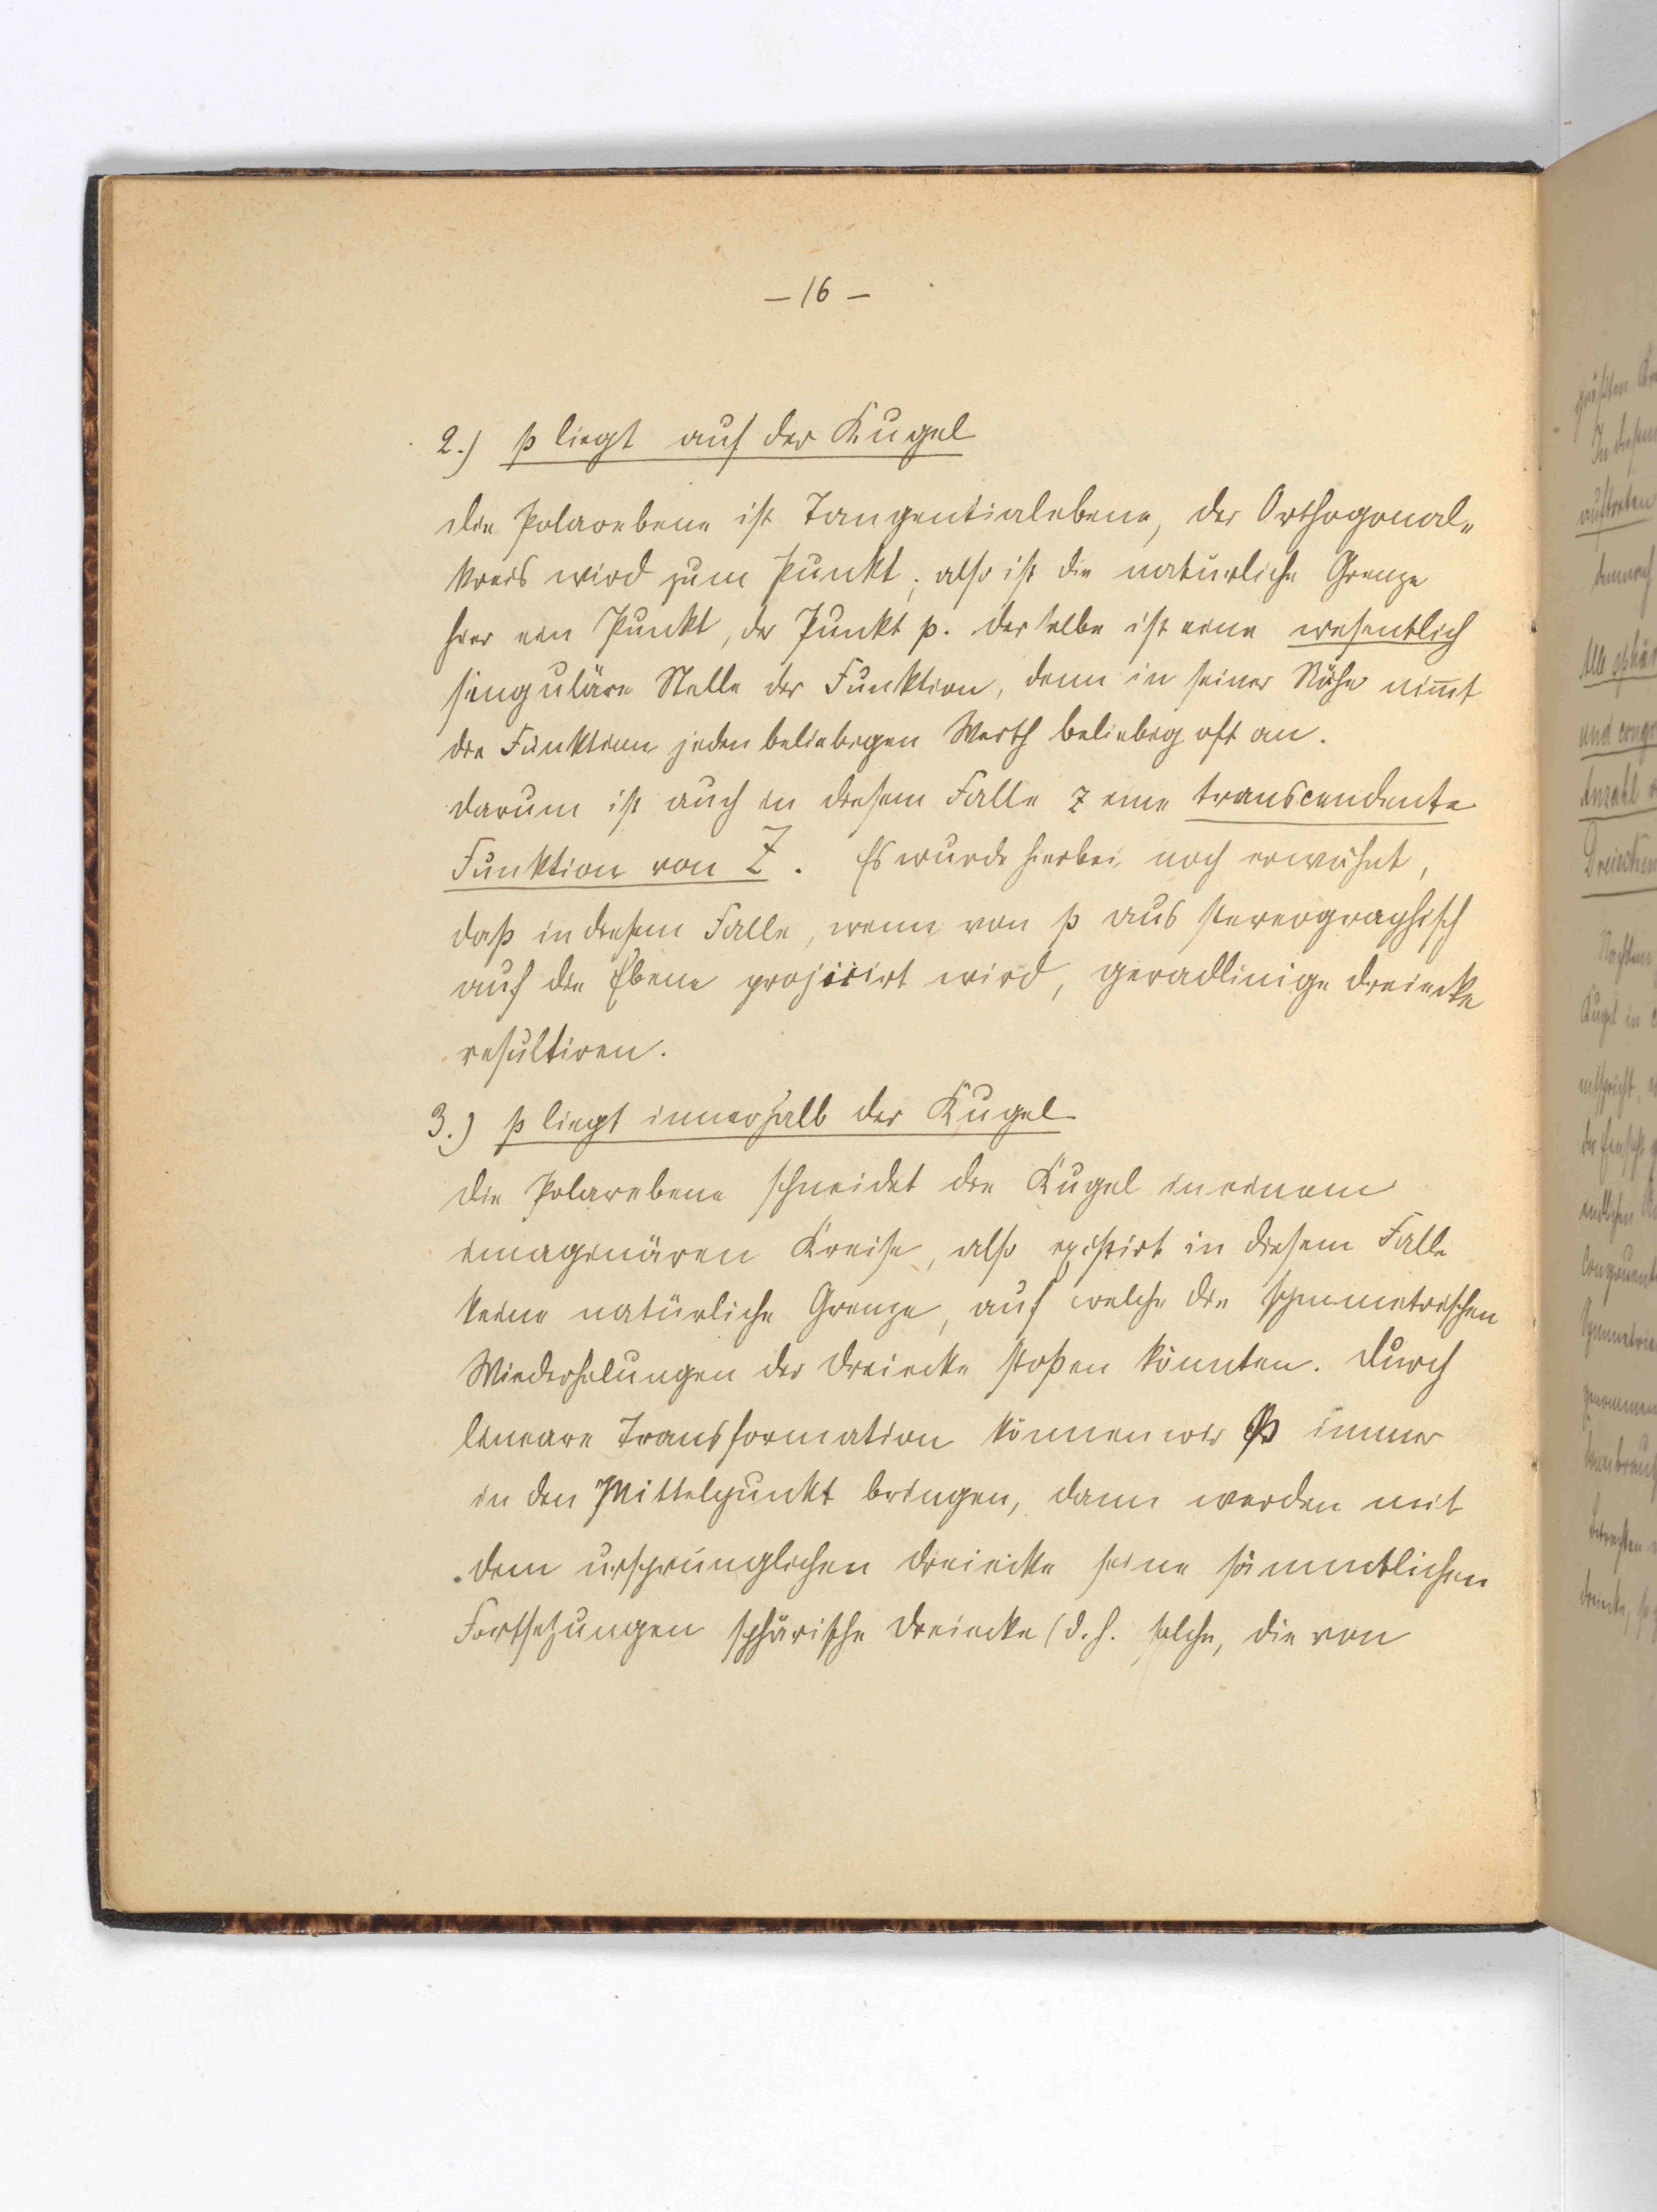 – 16 –
2.) p liegt auf der Kugel
Die Polarebene ist Tangentialebene, der Orthogonal-
kreis wird zum Punkt; also ist die natürliche Grenze
hier ein Punkt, der Punkt p. Derselbe ist eine wesentlich
singuläre Stelle der Funktion, denn in seiner Nähe nim̅t
die Funktion jeden beliebigen Werth beliebig oft an.
Darum ist auch in diesem Falle z eine transcendente
Funktion von Z. Es wurde hierbei noch erwähnt,
daß in diesem Falle, wenn von p aus stereographisch
auf die Ebene projicirt wird, geradlinige Dreiecke
resultiren.
3.) p liegt innerhalb der Kugel
Die Polarebene schneidet die Kugel in einem
imaginären Kreise, also existirt in diesem Falle
keine natürliche Grenze, auf welche die symmetrischen
Wiederholungen der Dreiecke stoßen könnten. Durch
lineare Transformation können wir p immer
in den Mittelpunkt bringen, dann werden mit
dem ursprünglichen Dreiecke seine sämmtlichen
Fortsetzungen sphärische Dreiecke (d. h. solche, die von